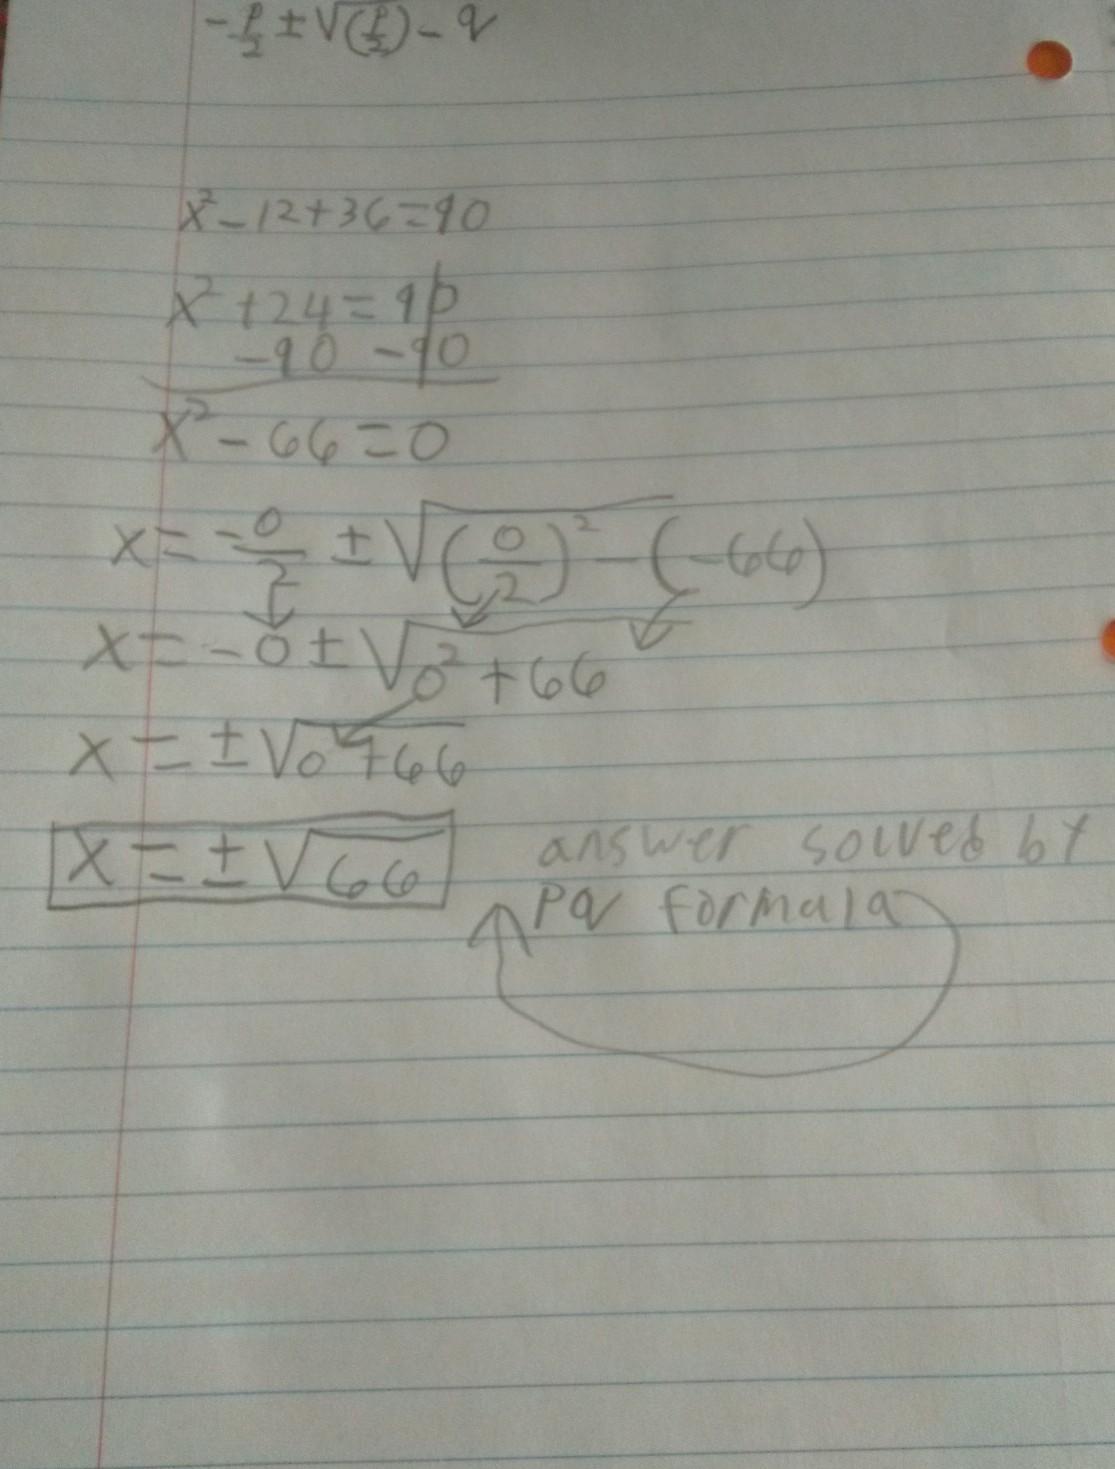 -p/2 ± √(p/2) - q
x² - 12 + 36 = 90
x² + 24 = 90
-90 -90
x² - 66 = 0
x = -0/2 ± √(0/2)² - (-66)
x = -0 ± √0² + 66
x = ± √0 + 66
x = ± √66
answer solved by
pq formula